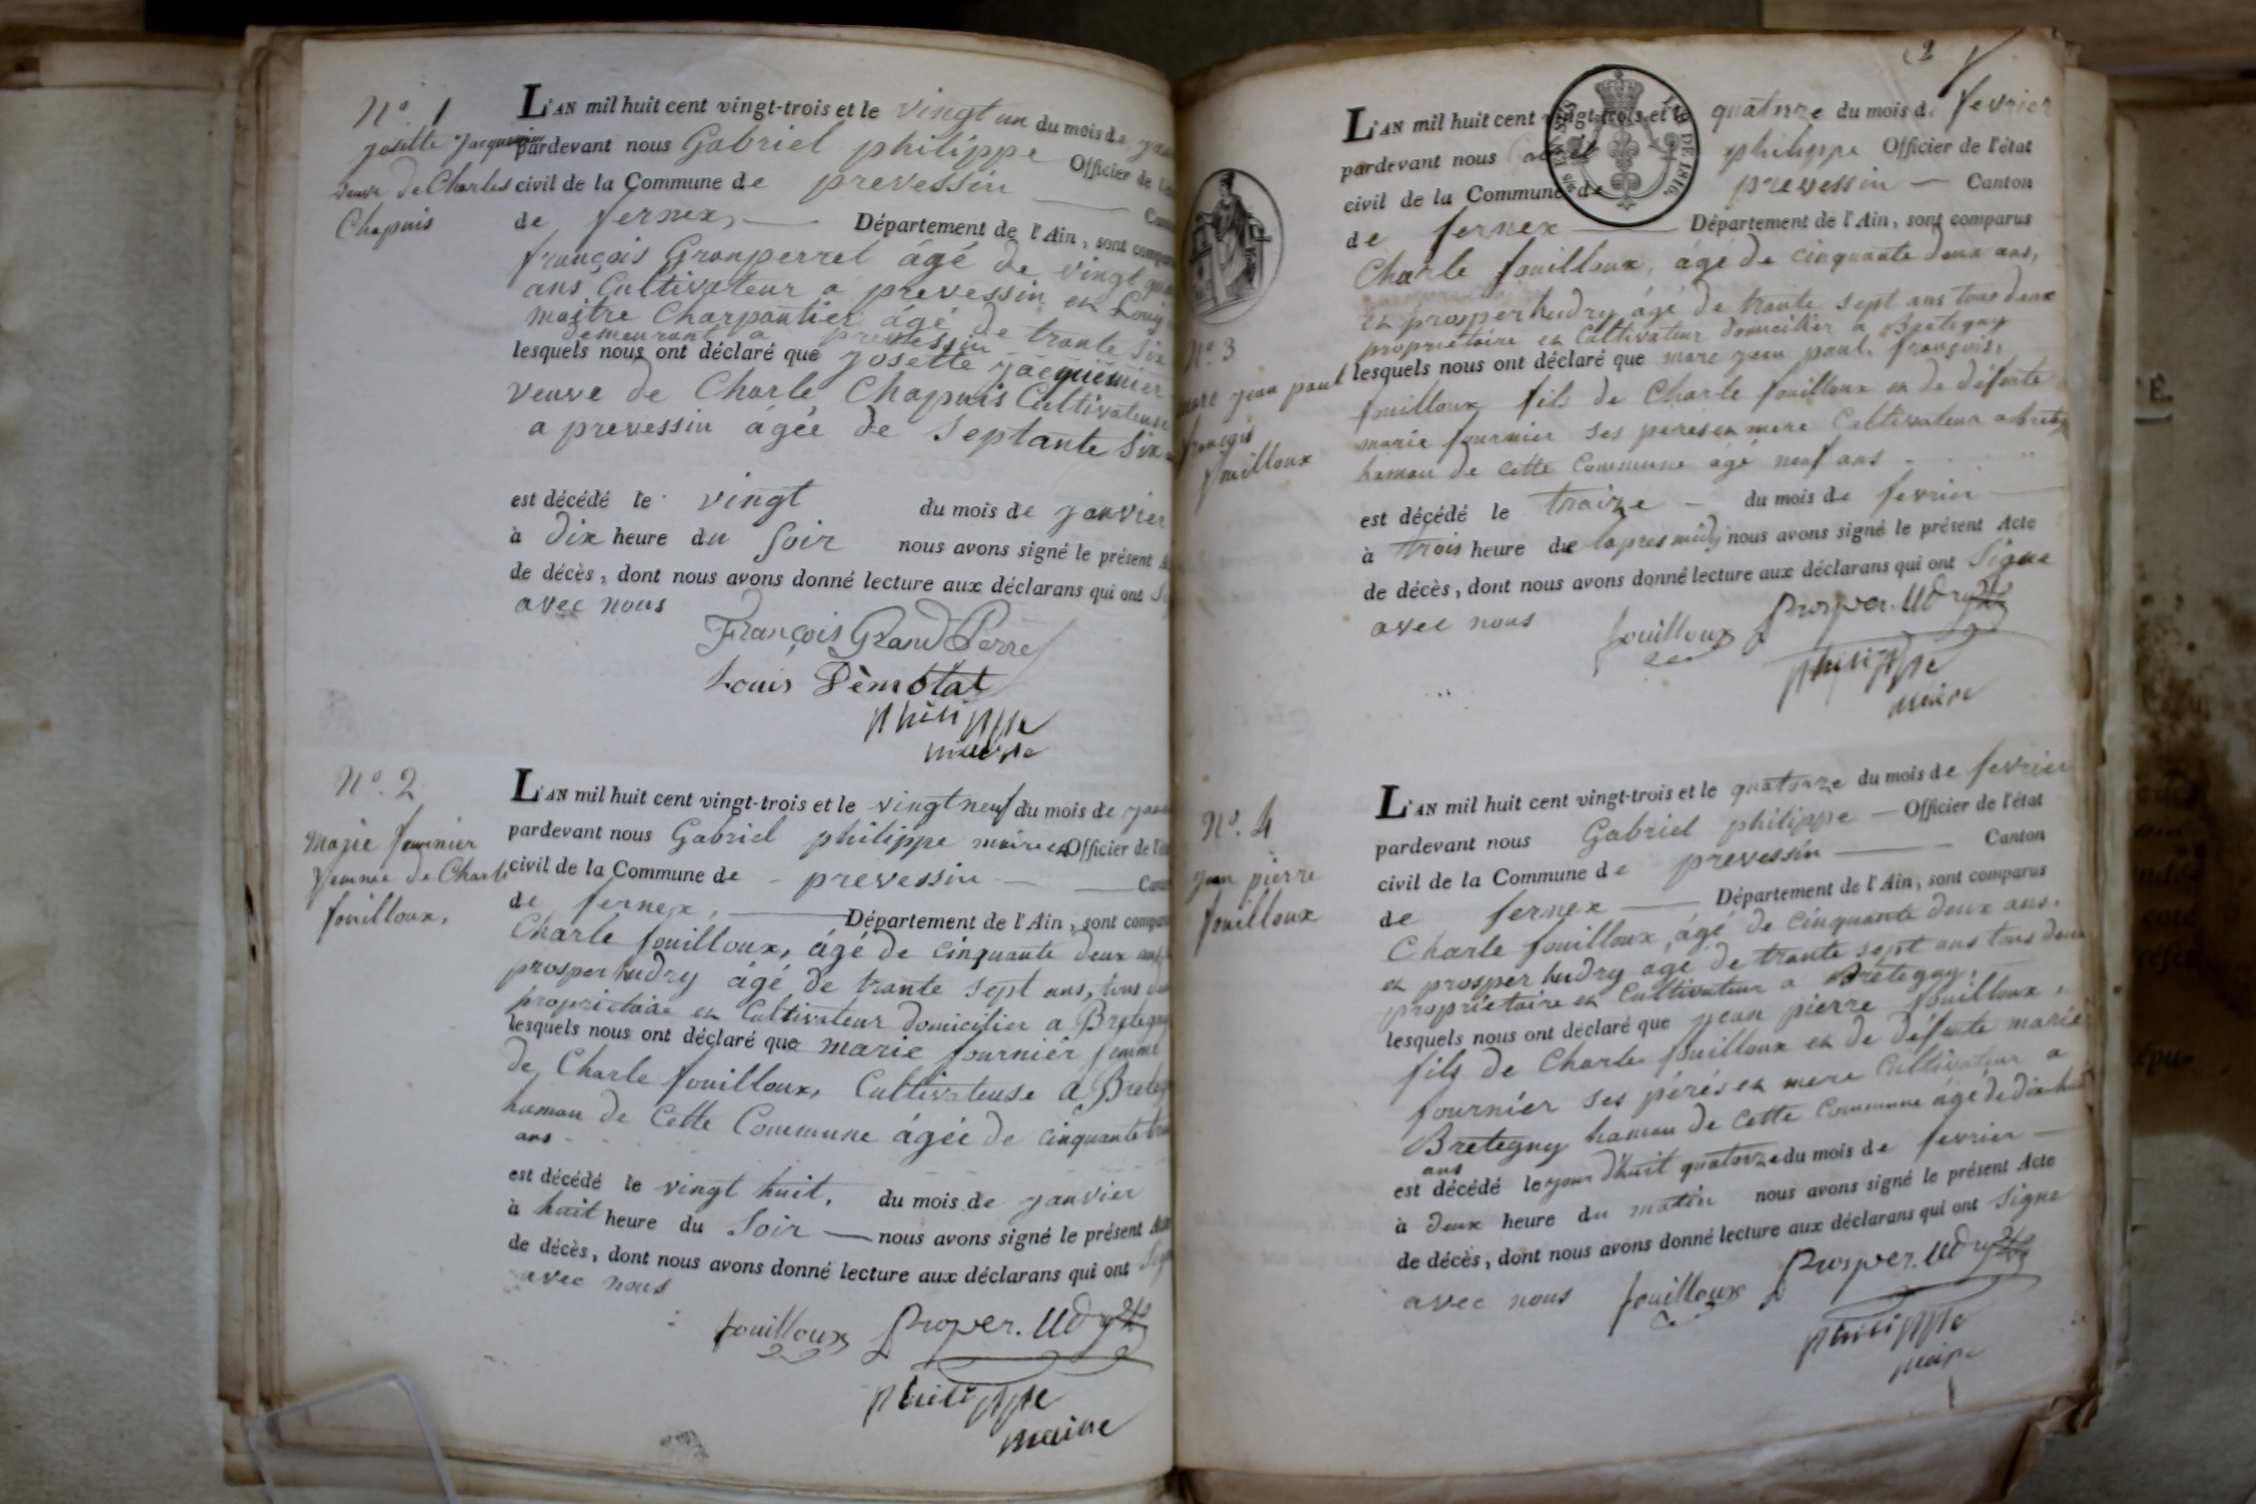 N.o 1
josette jacquemier
veuve de Charles
Chapuis
L'AN mil huit cent vingt-trois et le vingt un du mois de
pardevant nous Gabriel philippe Officier de
civil de la Commune de prevessin
de fernex, Département de l'Ain, sont
françois Granperrel âgé de vingt
ans Cultivateur a prevessin et Louis
maître Charpantier âgé de trante six
demeurant a prevessin
lesquels nous ont déclaré que josette jacquemier
veuve de Charle Chapuis Cultivateuse
a prevessin âgée de Septante Six
est décédé le vingt du mois de janvier
à dix heure du Soir nous avons signé le présent
de décès, dont nous avons donné lecture aux déclarans qui ont
avec nous
François Grand Perrel
Louis Dèmotat
philippe
maire
N.o 2
marie fournier
femme de Charle
fouilloux,
L'AN mil huit cent vingt-trois et le vingt neuf du mois de
pardevant nous Gabriel philippe maire et Officier de
civil de la Commune de prevessin
de fernex, Département de l'Ain, sont
Charle fouilloux, âgé de cinquante deux ans,
prosper hudry âgé de trante sept ans, tous
propriétaire et Cultivateur domicilier a Bretegny
lesquels nous ont déclaré que marie fournier femme
de Charle fouilloux, Cultivateuse a
hamau de cette Commune âgée de cinquante
ans
est décédé le vingt huit, du mois de janvier
à huit heure du Soir nous avons signé le présent
de décès, dont nous avons donné lecture aux déclarans qui ont
avec nous
fouilloux prosper. Udry
philippe
maire
2
L'AN mil huit cent vingt-trois et le quatorze du mois de fevrier
pardevant nous philippe Officier de l'état
civil de la Commune de prevessin Canton
de fernex Département de l'Ain, sont comparus
Charle fouilloux, âgé de cinquante deux ans,
et prosper hudry âgé de trante sept ans tous deux
propriétaire et Cultivateur domicilier a Bretegny
N.o 3
marc jean paul
françois
fouilloux
lesquels nous ont déclaré que marc jean paul françois,
fouilloux fils de Charle fouilloux et de défunte
marie fournier ses peres et mere Cultivateur
hamau de cette Commune âgé neuf ans
est décédé le traize du mois de fevrier
à trois heure de lapres midy nous avons signé le présent Acte
de décès, dont nous avons donné lecture aux déclarans qui ont Signe
avec nous
fouilloux prosper. Udry
philippe
maire
N.o 4
jean pierre
fouilloux
L'AN mil huit cent vingt-trois et le quatorze du mois de fevrier
pardevant nous Gabriel philippe Officier de l'état
civil de la Commune de prevessin Canton
de fernex Département de l'Ain, sont comparus
Charle fouilloux, âgé de cinquante deux ans,
et prosper hudry agé de trante sept ans tous deux
propriétaire et Cultivateur a Bretegny,
lesquels nous ont déclaré que jean pierre fouilloux,
fils de Charle fouilloux et de défunte marie
fournier ses pérés et mere Cultivateur a
Bretegny hamau de cette Commune âgé de dix huit
ans
est décédé le jour d'huit quatorze du mois de fevrier
à deux heure du matin nous avons signé le présent Acte
de décès, dont nous avons donné lecture aux déclarans qui ont Signe
avec nous
fouilloux prosper. Udry
philippe
maire